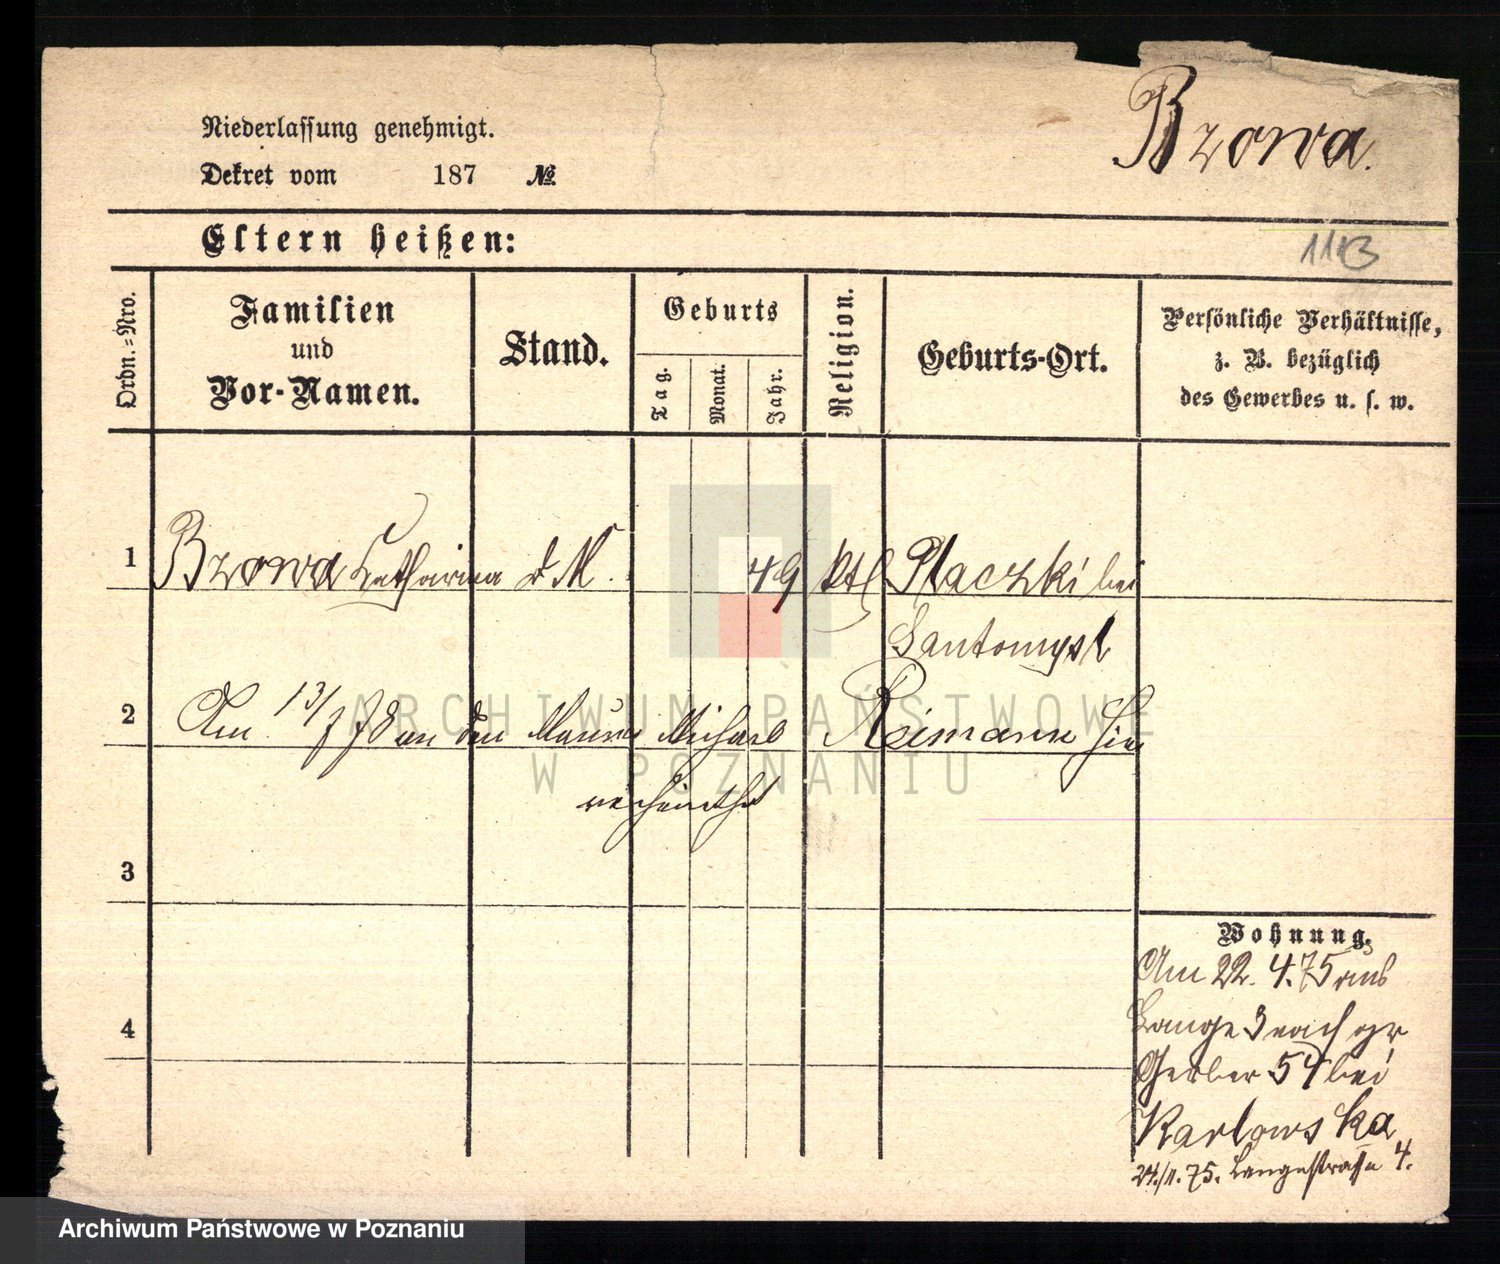 Bzowa.
Niederlassung genehmigt.
Dekret vom 187 №
1113
Eltern heißen:
Ordn.-Nro.
Familien
und
Vor-Namen.
Stand.
Geburts
Tag.
Monat.
Jahr.
Religion.
Geburts-Ort.
Persönliche Verhältnisse,
z. B. bezüglich
des Gewerbes u. s. w.
1 Bzowa Catharina d M. 49 ktl Placzki bei
Santomysl
2 Am 13/7 78 an den Maurer Michael Reimann hier
verheirathet
3
4
Wohnung.
Am 22. 4. 75 aus
Lange 3 nach gr
Gerber 54 bei
Karlowska
24./11. 75. Langestrasse 4.
ARCHIWUM PAŃSTWOWE
W POZNANIU
Archiwum Państwowe w Poznaniu